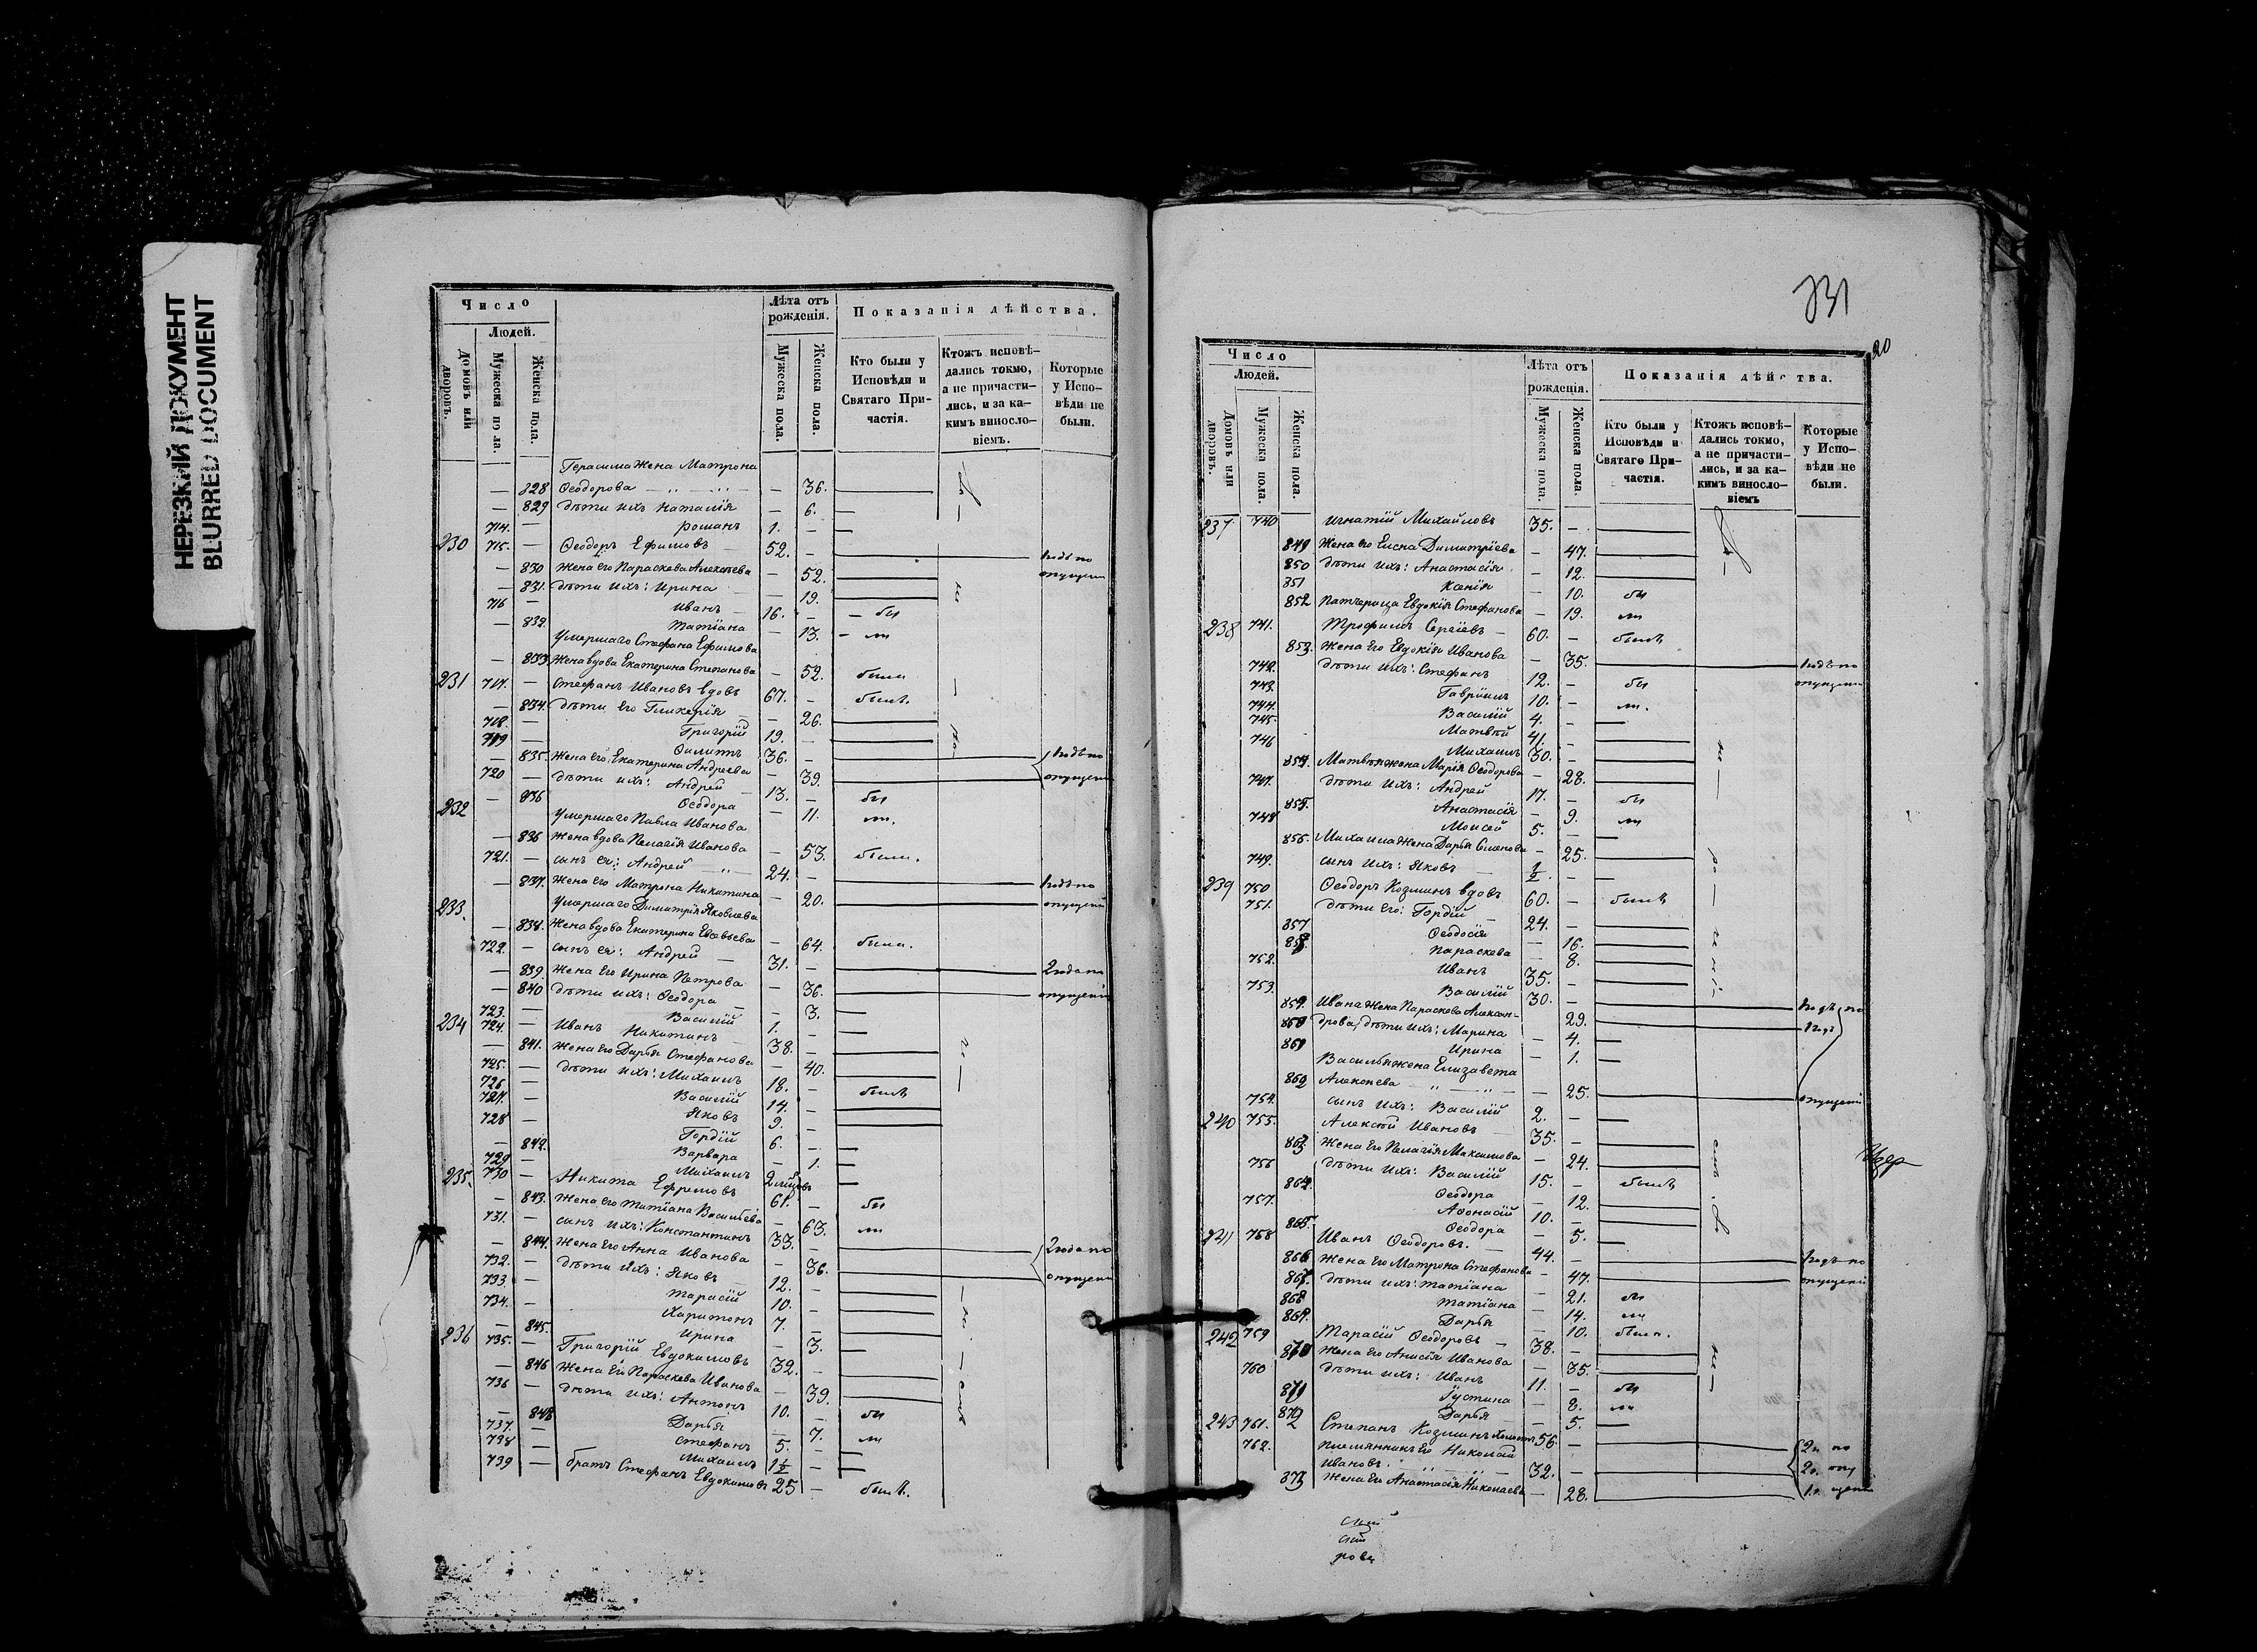 НЕРЕЗКИЙ ДОКУМЕНТ
BLURRED DOCUMENT
Число
Людей.
Домовъ или дворовъ.
Мужеска пола.
Женска пола.
Лѣта отъ рожденія.
Мужеска пола.
Женска пола.
Показанія дѣйства.
Кто были у Исповѣди и Святаго Причастія.
Ктожъ исповѣдались токмо, а не причастились, и за какимъ винословіемъ.
Которые у Исповѣди не были.
Герасима жена Матрона
— 828 Ѳеодорова — 36.
— 829 дѣти ихъ Наталія — 6.
714. — Романъ 1. —
230 715. — Ѳеодоръ Ефимовъ 52. —
— 830 жена его Параскева Алексѣева — 52.
— 831. дѣти ихъ: Ирина — 19.
716 — Иванъ 16. — бы
— 832. Татіана — 13. — ли
Умершаго Стефана Ефимова
— 833 жена вдова Екатерина Степанова — 52. была
231 717. — Стефанъ Ивановъ вдовъ 67. — былъ.
— 834. дѣти его Гликерія — 26.
718. — Григорій 19. —
719 — Филиппъ 36. —
— 835. жена его: Екатерина Андреева — 39.
720 — дѣти ихъ: Андрей 13. — бы
— 836 Ѳеодора — 11. ли.
232 Умершаго Павла Иванова
— 836 жена вдова Пелагія Иванова — 53. была.
721. — сынъ ея: Андрей 24. —
— 837. жена его Матрона Никитина — 20.
233. Умершаго Димитрія Яковлева
— 838. жена вдова Екатерина Евсевьева — 64. была.
722. — сынъ ея: Андрей 31. —
— 839. жена его Ирина Петрова — 36.
— 840 дѣти ихъ: Ѳеодора — 3.
723. — Василій 1. —
234 724. — Иванъ Никитинъ 38. —
— 841. жена его Дарья Стефанова — 40.
725. — дѣти ихъ: Михаилъ 18. — былъ
726 — Василій 14. —
727. — Яковъ 9. —
728 — Гордій 6. —
— 842. Варвара — 1.
729 — Михаилъ
235. 730 — Никита Ефремовъ 61. — бы
— 843. жена его Татіана Васильева — 63. ли
731. — сынъ ихъ: Константинъ 33. —
— 844. жена его Анна Иванова — 36.
732. — дѣти ихъ: Яковъ 12. —
733 — Тарасій 10. —
734. — Харитонъ 7. —
— 845. Ирина — 3.
236 735. — Григорій Евдокимовъ 32. —
— 846 жена его Параскева Иванова — 39.
736 — дѣти ихъ: Антонъ 10. — бы
— 848 Дарья — 7. ли
737. — Стефанъ 5. —
738 — Михаилъ 1½ —
739 — братъ Стефанъ Евдокимовъ 25 — былъ.
331
20
Число
Людей.
Домовъ или дворовъ.
Мужеска пола.
Женска пола.
Лѣта отъ рожденія.
Мужеска пола.
Женска пола.
Показанія дѣйства.
Кто были у Исповѣди и Святаго Причастія.
Ктожъ исповѣдались токмо, а не причастились, и за какимъ винословіемъ
Которые у Исповѣди не были.
237 740 Игнатій Михайловъ 35. —
849 жена его Елена Димитріева — 47.
850 дѣти ихъ: Анастасія — 12.
851 Ксенія — 10. бы
852 Евдокія Стефанова — 19. ли
238 741. Трофимъ Сергіевъ 60. — былъ
853. жена его Евдокія Иванова — 35.
742. дѣти ихъ: Стефанъ 12. — бы
743. Гавріилъ 10. — ли.
744. Василій 4. —
745. Матвѣй 41. —
746 Михаилъ 30. —
854. Матвѣя жена Марія Ѳеодорова — 28.
747. дѣти ихъ: Андрей 17. — бы
855. Анастасія — 9. ли
748 Моисей 5. —
856. Михаила жена Дарья — 25.
749. сынъ ихъ: Яковъ ½. —
239 750 Ѳеодоръ Козминъ вдовъ 60. — былъ
751. дѣти его: Гордій 24. —
857 Ѳеодосія — 16.
858. Параскева — 8.
752. Иванъ 35. —
753. Василій 30. —
859. Ивана жена Параскева Алексан- 29.
860 дрова, дѣти ихъ: Марина — 4.
861 Ирина — 1.
Василья жена Елизавета
862 Алексѣева — 25.
754. сынъ ихъ: Василій 2. —
240 755. Алексѣй Ивановъ 35. —
863. жена его Пелагія Максимова — 24.
756 дѣти ихъ: Василій 15. — былъ
864. Ѳеодора — 12.
757. Аѳонасій 10. —
865. Ѳеодора — 5.
241 758 Иванъ Ѳеодоровъ. 44. —
866 жена его Матрона Стефанова — 47.
867. дѣти ихъ: Татіана — 21. бы
868 Татіана — 14. ли
869. Дарья — 10. была.
242 759 Тарасій Ѳеодоровъ 38. —
870 жена его Анисія Иванова — 35.
760 дѣти ихъ: Иванъ 11. — бы
871 Іустина — 8. ли
872 Дарья — 5.
243 761. Степанъ Козминъ 56. —
762. племянникъ его Николай
Ивановъ. 32. —
873 жена его Анастасія Николаева — 28.